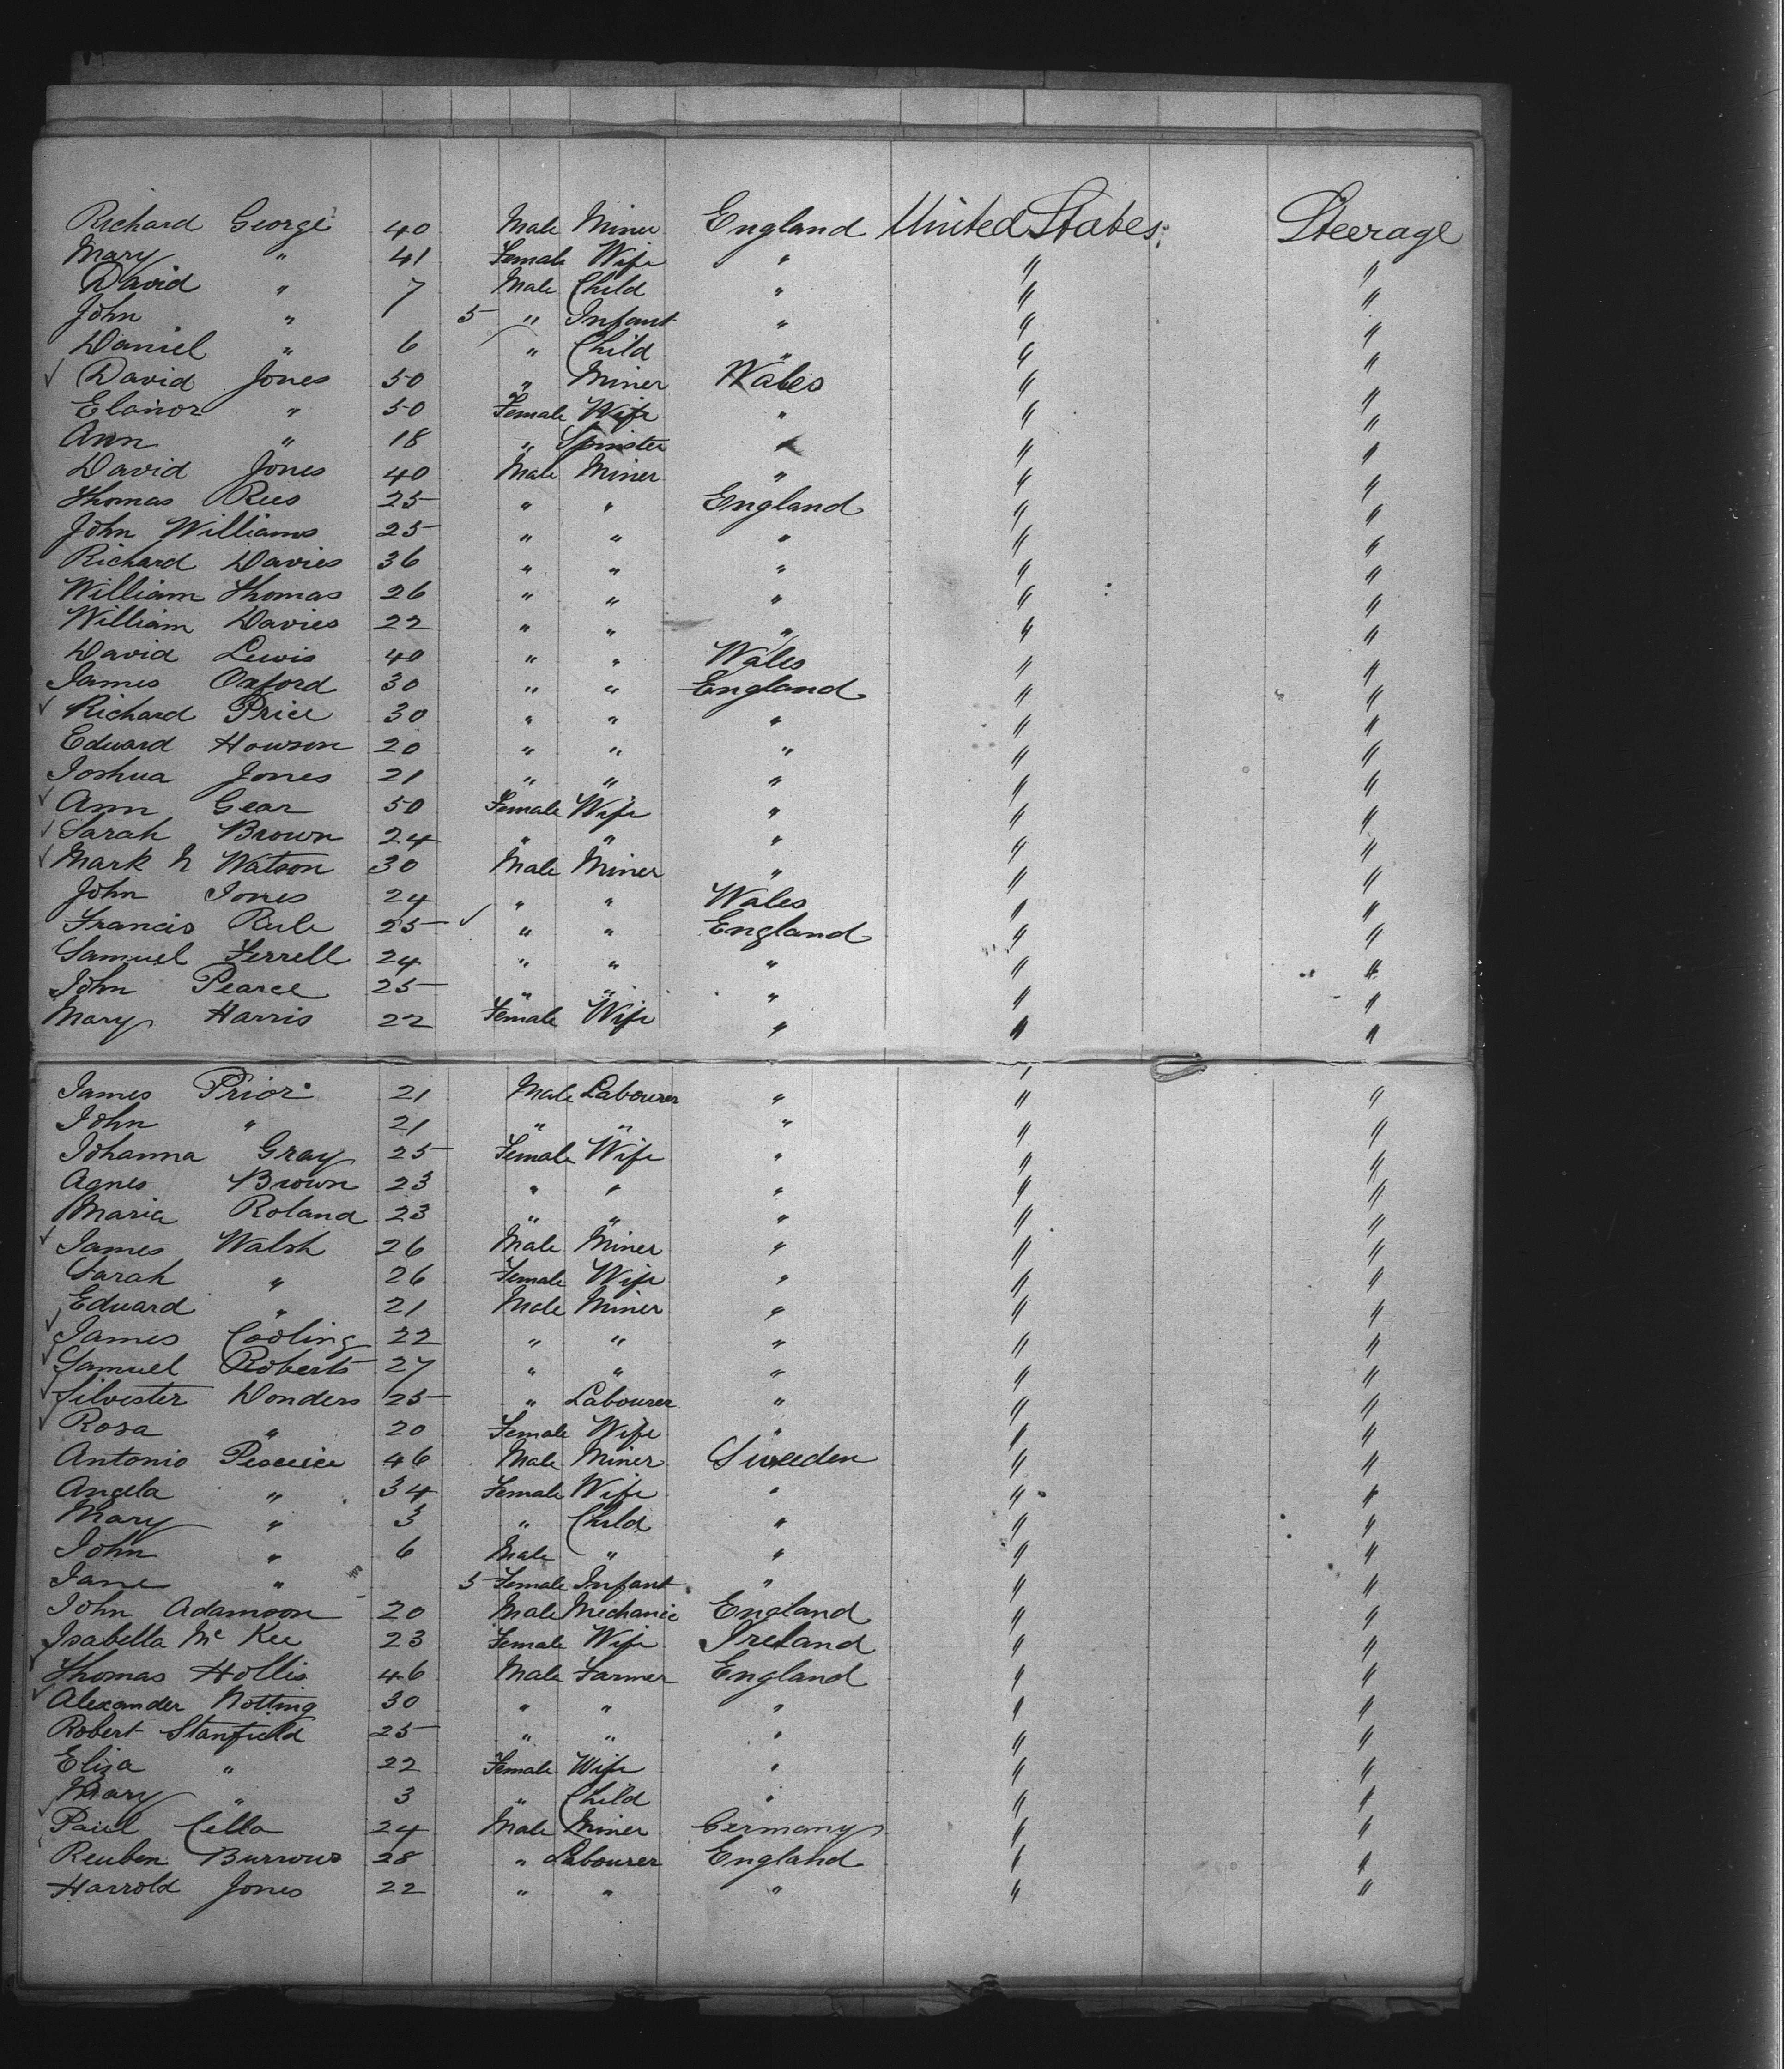 Richard George 40 Male Miner England United States Steerage
Mary " 41 Female Wife " " "
David " 7 Male Child " " "
John " 5 " Infant " " "
Daniel " 6 " Child " " "
✓ David Jones 50 " Miner Wales " "
Elanor " 50 Female Wife " " "
Ann " 18 " Spinster " " "
David Jones 40 Male Miner " " "
Thomas Rees 25 " " England " "
John Williams 25 " " " " "
Richard Davies 36 " " " " "
William Thomas 26 " " " " "
William Davies 22 " " " " "
David Lewis 40 " " Wales " "
James Oxford 30 " " England " "
✓ Richard Price 30 " " " " "
Edward Howson 20 " " " " "
Joshua Jones 21 " " " " "
✓ Ann Gear 50 Female Wife " " "
✓ Sarah Brown 24 " " " " "
✓ Mark N Watson 30 Male Miner " " "
John Jones 24 " " Wales " "
Francis Rule 25 ✓ " " England " "
Samuel Ferrell 24 " " " " "
John Pearce 25 " " " " "
Mary Harris 22 Female Wife " " "
James Prior 21 Male Labourer " " "
John " 21 " " " " "
Johanna Gray 25 Female Wife " " "
Agnes Brown 23 " " " " "
Maria Roland 23 " " " " "
✓ James Walsh 26 Male Miner " " "
Sarah " 26 Female Wife " " "
Edward " 21 Male Miner " " "
✓ James Cooling 22 " " " " "
✓ Samuel Roberts 27 " " " " "
✓ Silvester Donders 25 " Labourer " " "
✓ Rosa " 20 Female Wife " " "
Antonio 46 Male Miner Sweeden " "
Angela " 34 Female Wife " " "
Mary " 3 " Child " " "
John " 6 Male " " " "
Jane " 5 Female Infant " " "
John Adamson 20 Male Mechanic England " "
Isabella Mc Kee 23 Female Wife Ireland " "
✓ Thomas Hollis 46 Male Farmer England " "
✓ Alexander Notting 30 " " " " "
Robert Stanfield 25 " " " " "
Eliza " 22 Female Wife " " "
Mary " 3 " Child " " "
✓ Paul Cella 24 Male Miner Germany " "
Reuben Burrows 28 " Labourer England " "
Harrold Jones 22 " " " " "